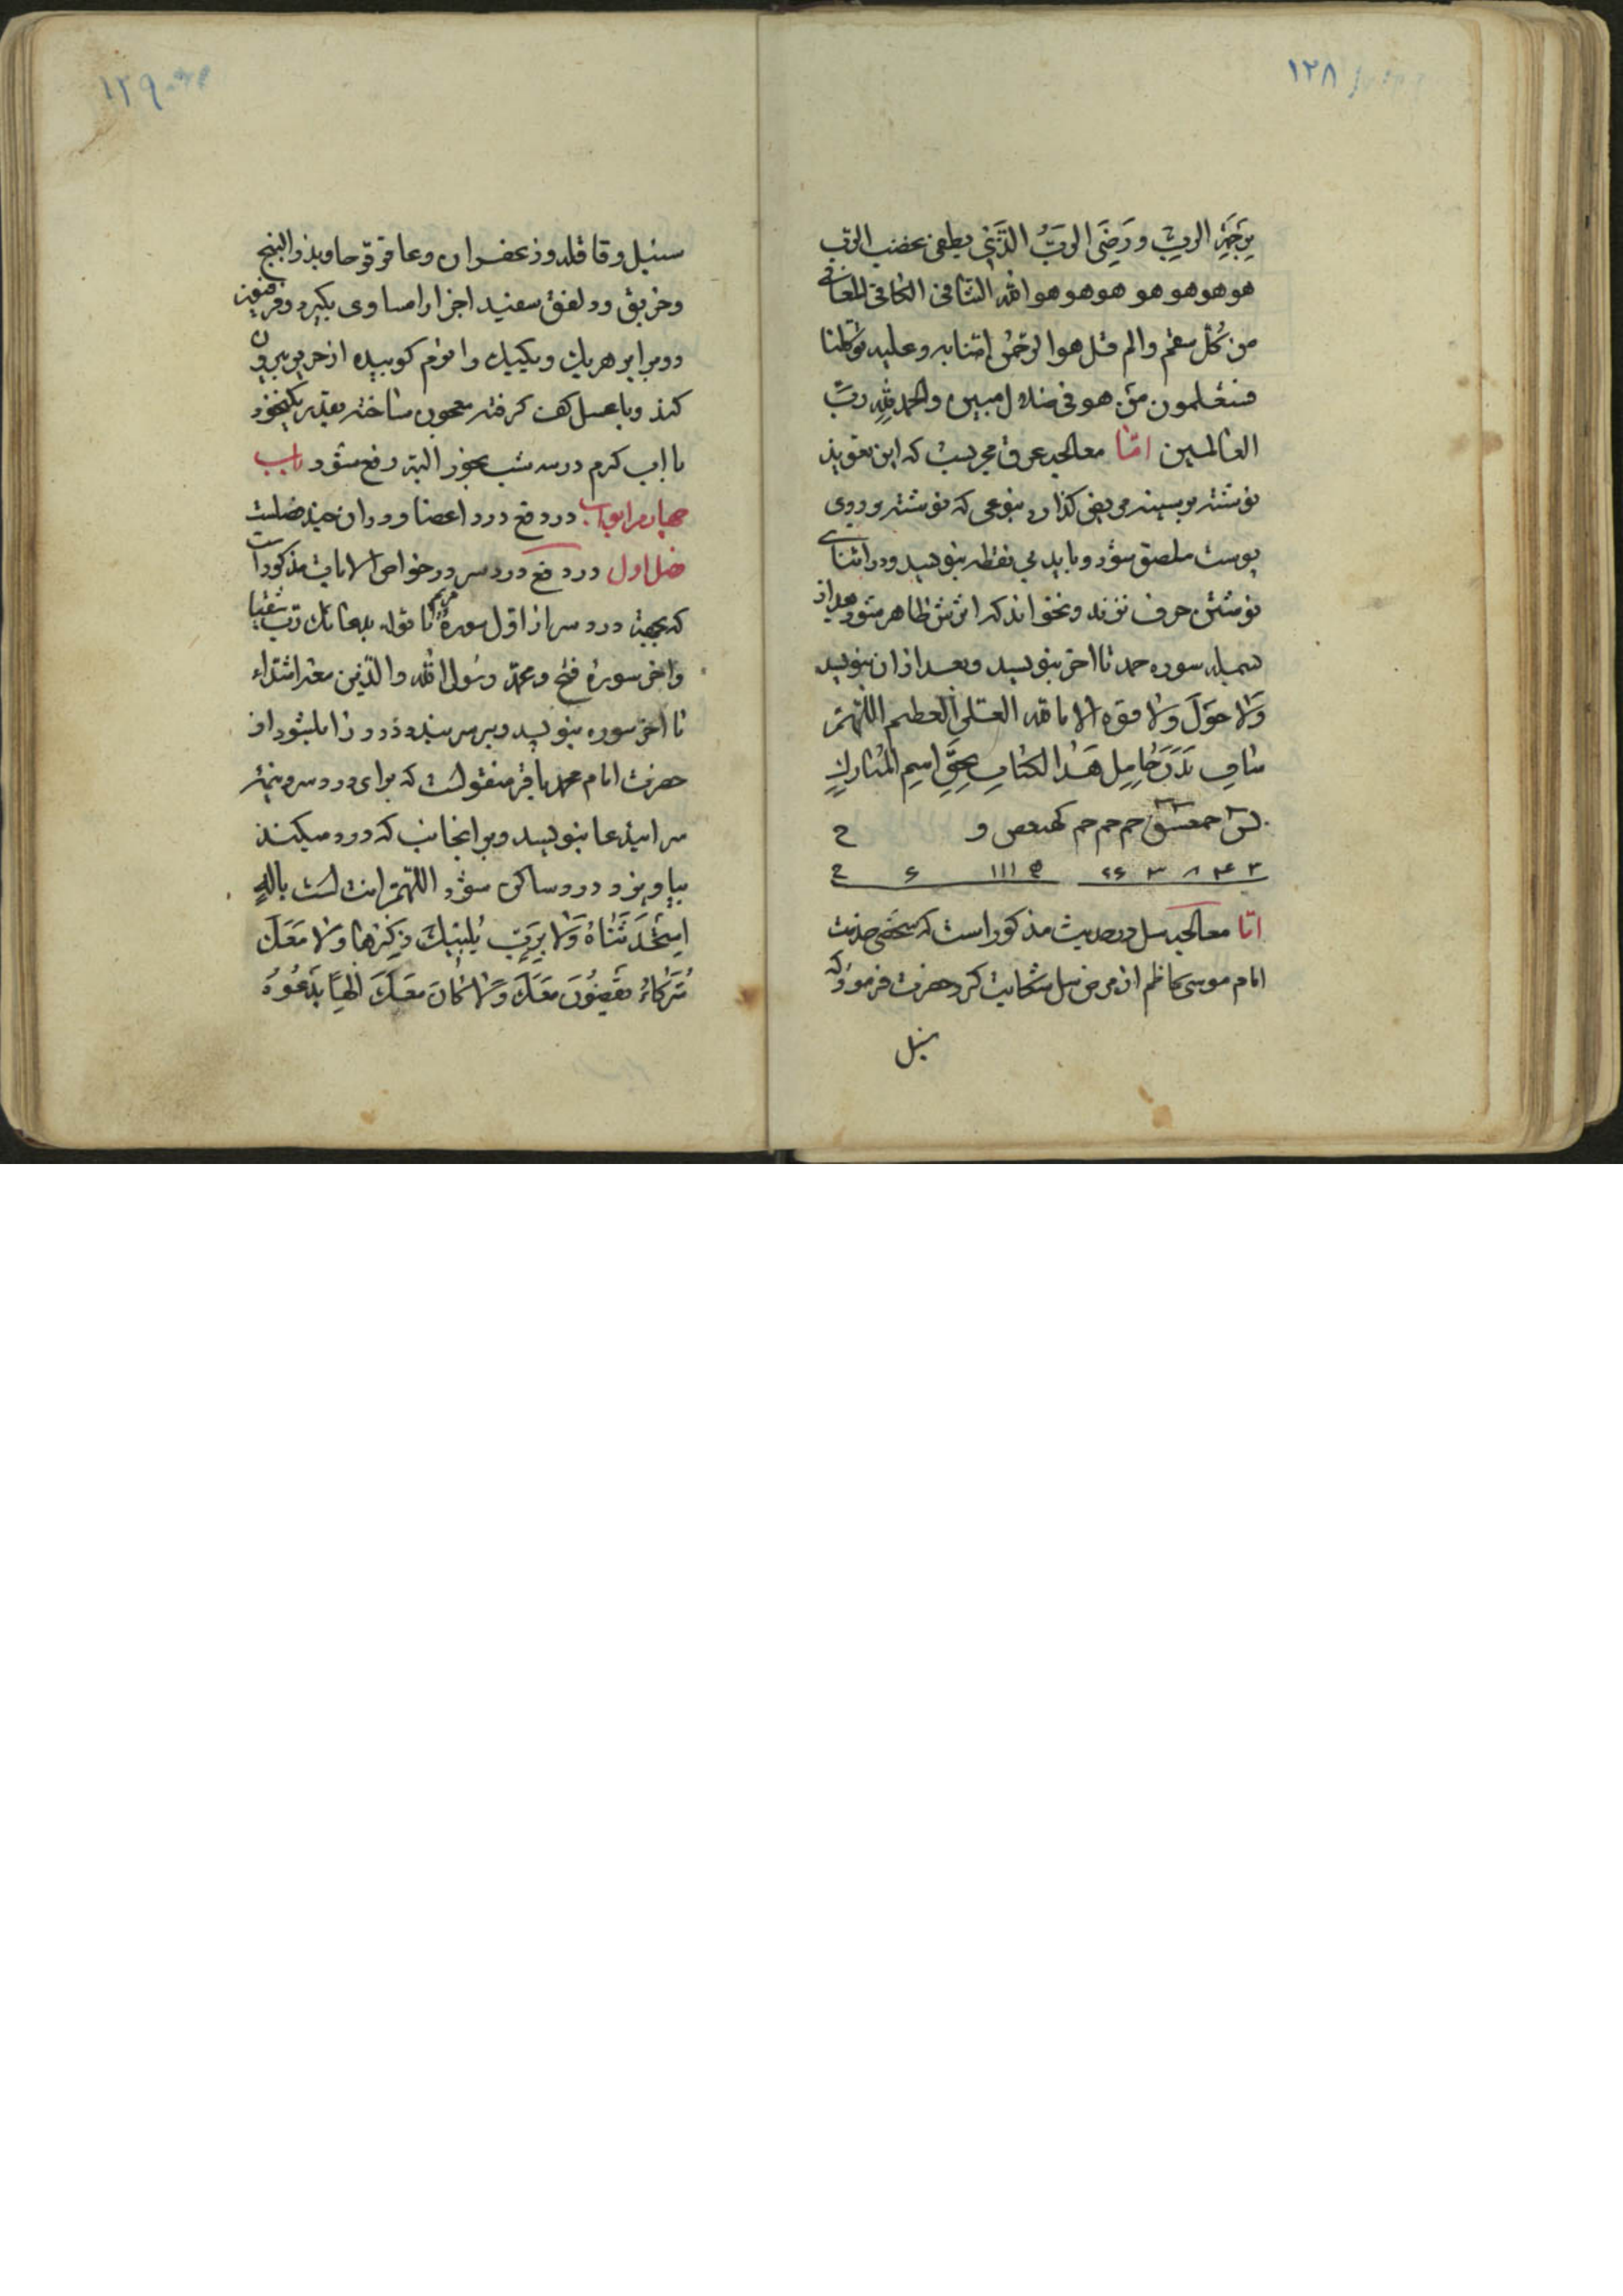 ١٢٨
الرب و رَضِیَ الربُّ الَّذی یطفی غضب الرب
هو هو هو هو هو هو هو هو الله الشافی الکافی المعافی
من کُلّ سقم والم قل هو الرحمٰن امنا به و علیه توکلنا
فستعلمون من هو فی ضلال مبین والحمد لله ربّ
العالمین امّا معالجه عرق مجربست که این تعویذ
نوشته بر سینه مریض کذارد بنوعی که نوشته بر روی
پوست ملصق شود و باید بی نقطه بنویسد و در اثنای
نوشتن حرف نزند و نخواند که اثرش ظاهر شود بعد از
بسمله سوره حمد تا اخر بنویسد و بعد از ان بنویسد
وَلا حَوْلَ وَلا قوه الا بالله العلی العظیم اللّٰهمّ
شافِ بَدَنَ حٰامِلِ هَذا الکتابِ بحقّ اسمِ المُبٰارکِ
یس حمعسق حم حم حم کهیعص و ح
امّا معالجه سل در حدیث مذکور است که شخصی خدمت
امام موسی کاظم از مرض سل شکایت کرد حضرت فرمود که
سنبل
١٢٩
سنبل و قاقله و زعفران و عاقرقرحا و بذر البنج
و خربق و دلفل سفید اجزا را مساوی بکیرد و فرفیون
دو برابر هر یک و یکیک را نرم کوبیده از حریر بیرون
کند و با عسل کف کرفته معجون ساخته بقدر یکنخود
با اب کرم در سه شب بخورد البته رفع شود باب
چهارم از ابواب در دفع درد اعضا و در ان چند فصلست
فصل اول در دفع درد سر در خواص الایات مذکور است
که بجهة درد سر از اول سورهٔ مریم تا قوله بدعائک رب شقیا
و اخر سورهٔ فتح و محمد رسول الله والذین معه اشداء
تا اخر سوره بنویسد و بر سر بندد درد زایل شود از
حضرت امام محمد باقر منقولست که برای درد سر و نیمه
سر ایندعا بنویسد و بر انجانب که درد میکند
بیاویزد درد ساکن شود اللّٰهمّ انت لست بالٰهٍ
اِسْتَحْدَثْنٰاهُ وَلٰا بِرَبٍّ یَبیدُ ذِکْرُهٰا وَلٰا مَعَکَ
شُرَکٰاءُ یَقضُونَ مَعَکَ وَلٰا کٰانَ مَعَکَ اِلٰهًا یَدْعُوهُ